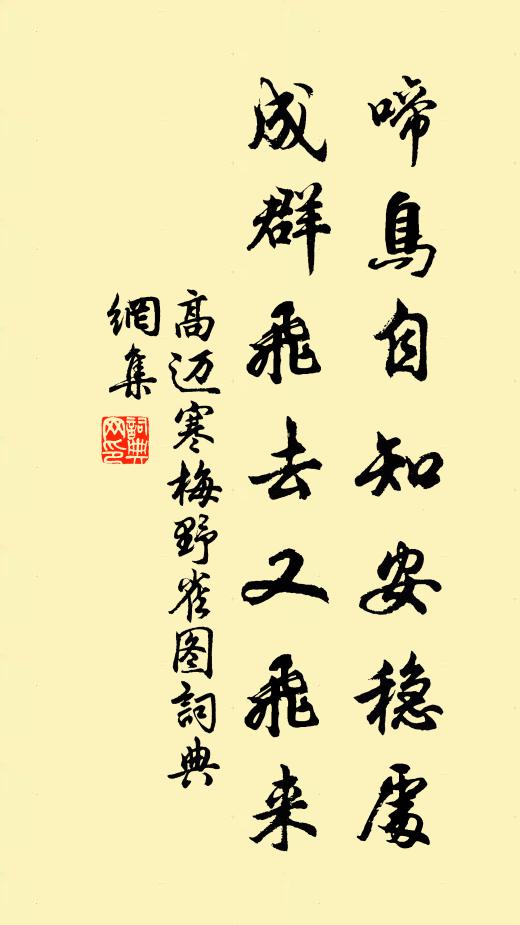 啼鳥自知安稳處
成群飛去又飛来
高迈寒梅野雀图詞典
網集
詞典網印